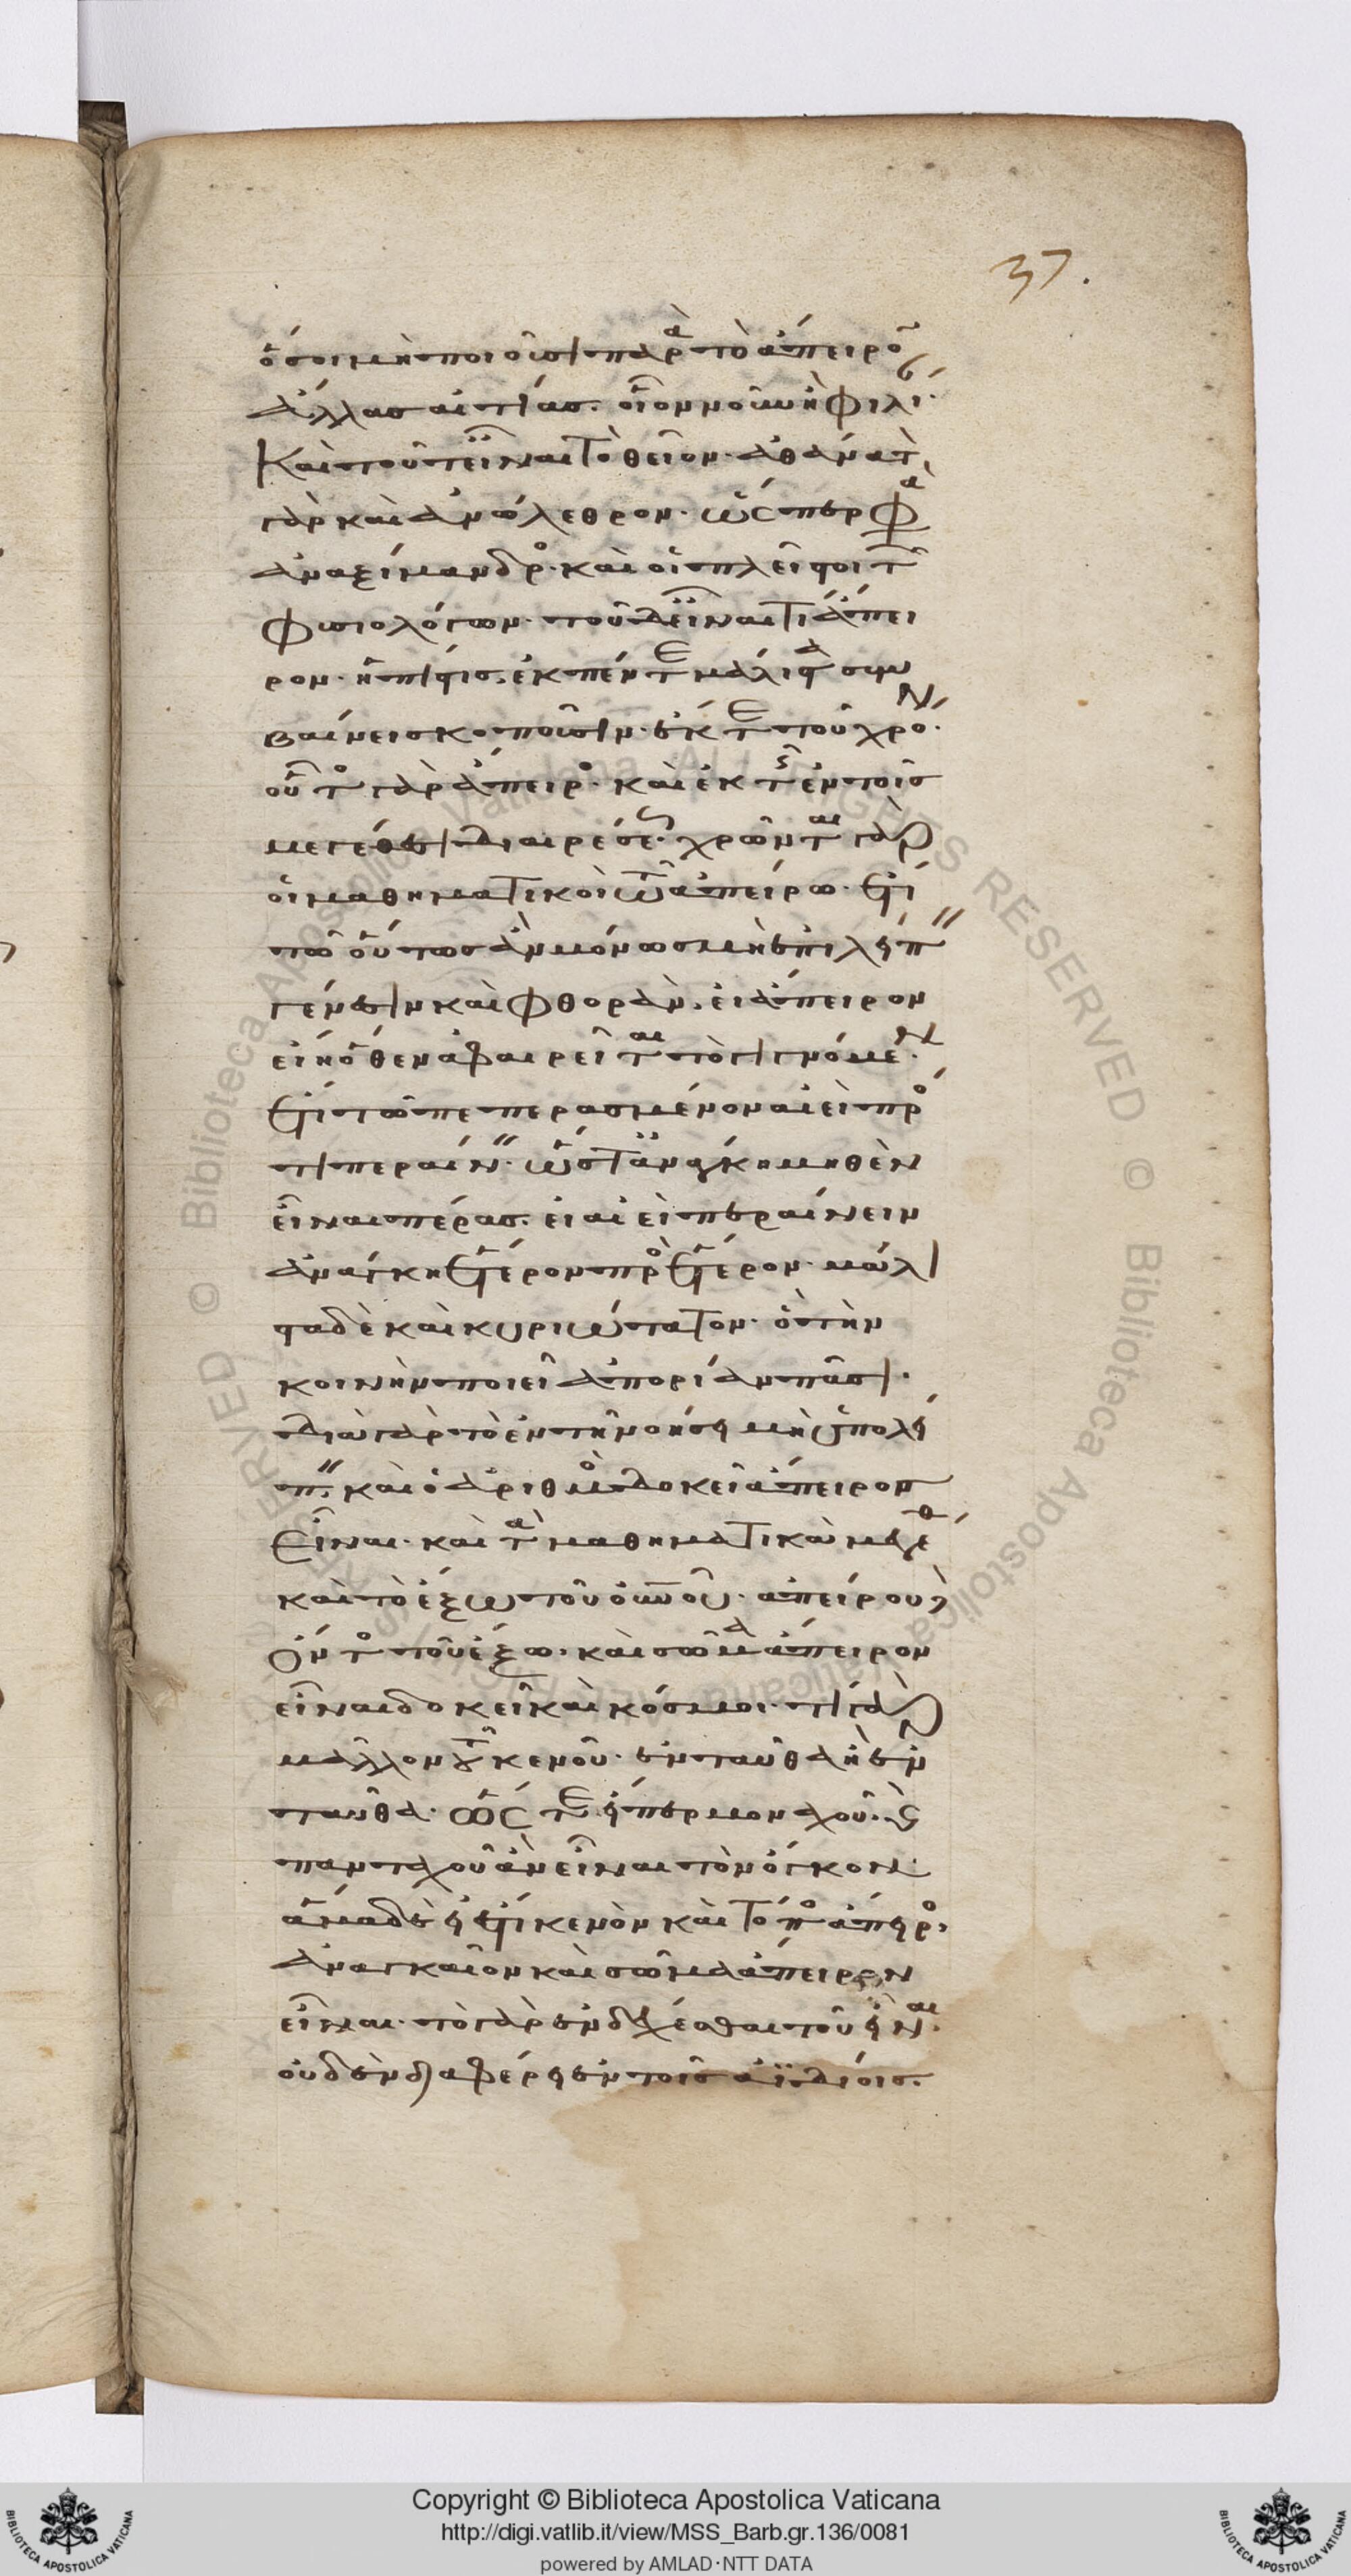 37.
ὅσοι μὴ ποιοῦσι παρὰ τὸ ἄπειρον
ἄλλας αἰτίας. οἷον νοῦν ἢ φιλί·
Καὶ τοῦτ εἶναι τὸ θεῖον· ἀθάνατον
γὰρ καὶ ἀνώλεθρον· ὥς περ φα
ἀναξίμανδρος· καὶ οἱ πλεῖστοι τῶν
φυσιολόγων· τοῦ δ εἶναι τι ἄπει
ρον· ἡ πίστις. ἐκ πέντε μάλιστα συμ
βαίνει σκοποῦσιν· ἔκ τε τοῦ χρόν·
οὗτος γὰρ ἄπειρος· καὶ ἐκ τῆς ἐν τοῖς
μεγέθεσι διαιρέσεως· χρῶνται γὰρ
οἱ μαθηματικοὶ τῶ ἀπείρω· ἔτι
τῶ οὕτως ἂν μόνως μὴ ἐπιλείπειν
γένεσιν καὶ φθορὰν. εἰ ἄπειρον
εἴη ὅθεν ἀφαιρεῖται τὸ γιγνόμεν·
ἔτι τῶ πεπερασμένον αἰεὶ πρός
τι περαίνειν· ὥστ ἀνάγκη μηθὲν
εἶναι πέρας. εἰ αἰεὶ περαίνειν
ἀνάγκη ἕτερον πρὸς ἕτερον· μάλι
στα δὲ καὶ κυριώτατον· ὃ τὴν
κοινὴν ποιεῖ ἀπορίαν πᾶσι·
διὰ γὰρ τὸ ἐν τῇ νοήσει μὴ ὑπολεί
πειν· καὶ ὁ ἀριθμὸς δοκεῖ ἄπειρον
εἶναι· καὶ τὰ μαθηματικὰ μεγέθ
καὶ τὸ ἔξω τοῦ οὐνοῦ· ἀπείρου δ
ὄντος τοῦ ἔξω· καὶ σῶμα ἄπειρον
εἶναι δοκεῖ καὶ κόσμοι· τί γὰρ
μᾶλλον τοῦ κενοῦ· ἐνταῦθα ἢ ἐν
ταῦθα· ὥς τε εἴπερ μοναχοῦ· καὶ
πανταχοῦ ἂν εἶναι τὸν ὄγκον·
ἅμα δὲ εἰ ἔστι κενὸν καὶ τόπος ἄπειρος·
ἀναγκαῖον καὶ σῶμα ἄπειρον
εἶναι· τὸ γὰρ ἐνδέχεσθαι τοῦ εἶναι·
οὐδὲν διαφέρει ἐν τοῖς ἀϊδίοις.
Copyright © Biblioteca Apostolica Vaticana
http://digi.vatlib.it/view/MSS_Barb.gr.136/0081
powered by AMLAD·NTT DATA